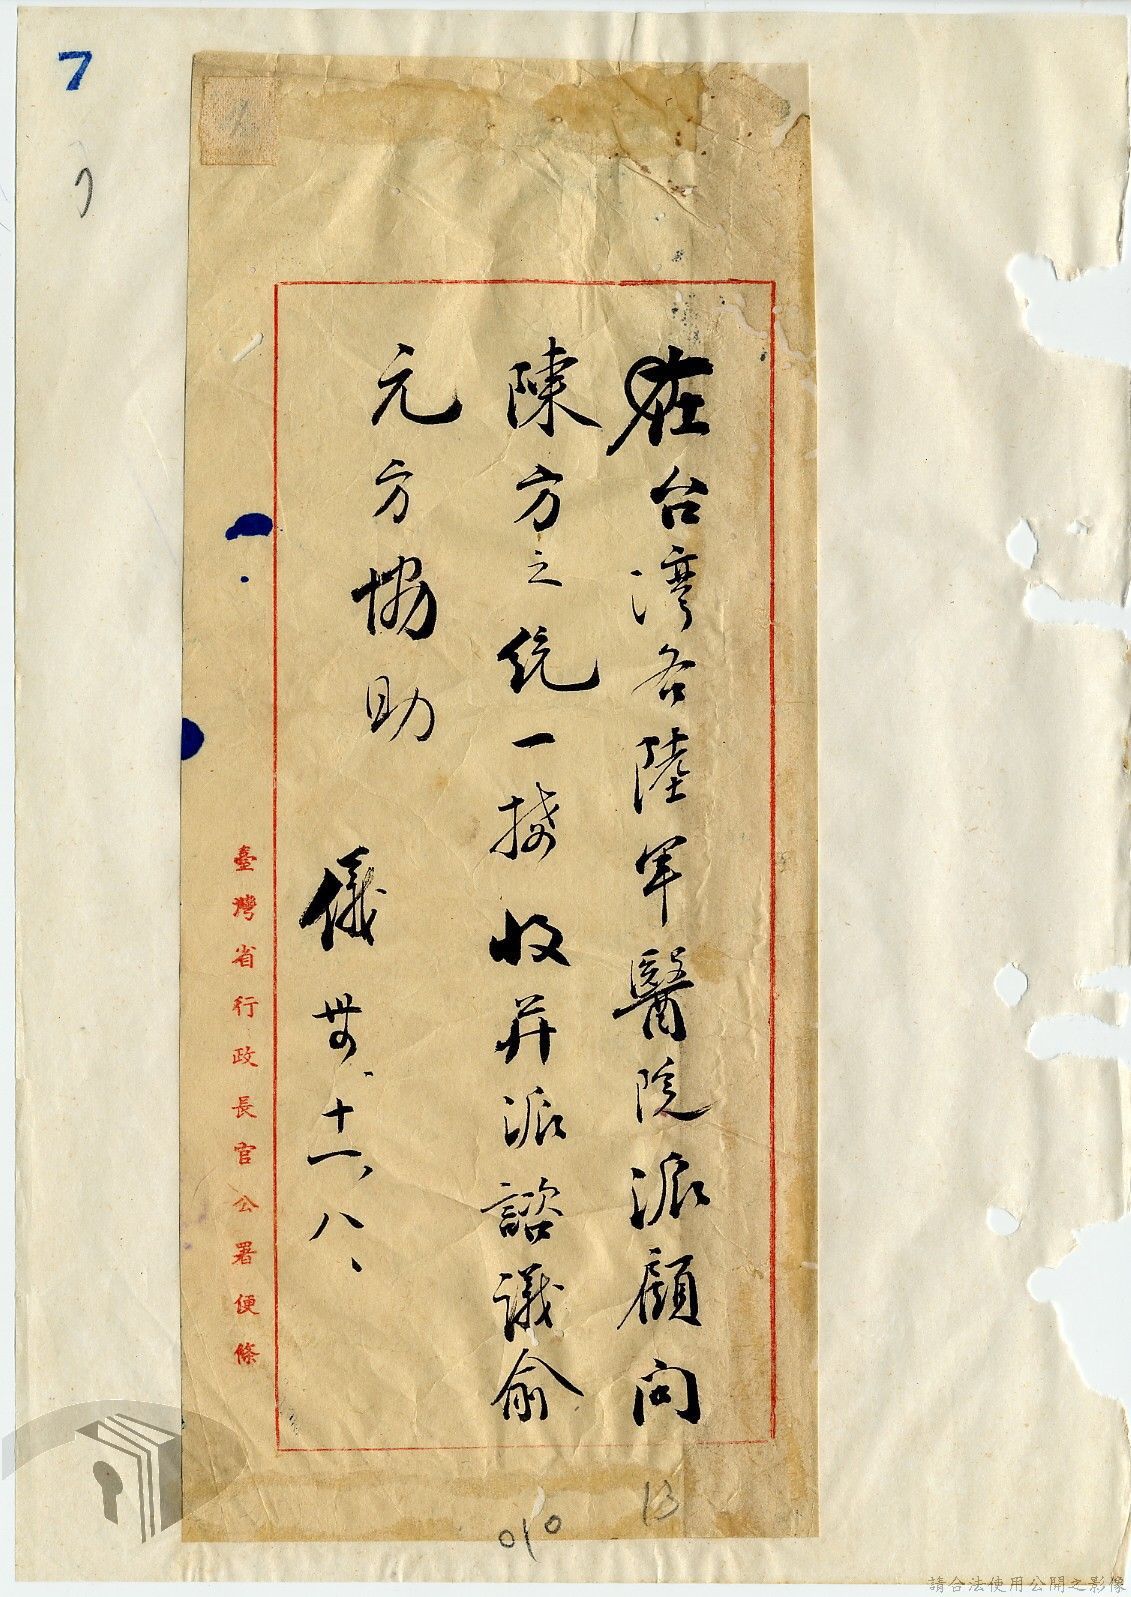 7
在台灣各陸軍醫院派顧问
陳方之統一接收并派諮議俞
元方協助
儀 卅四、十一、八、
臺灣省行政長官公署便條
13
010
請合法使用公開之影像